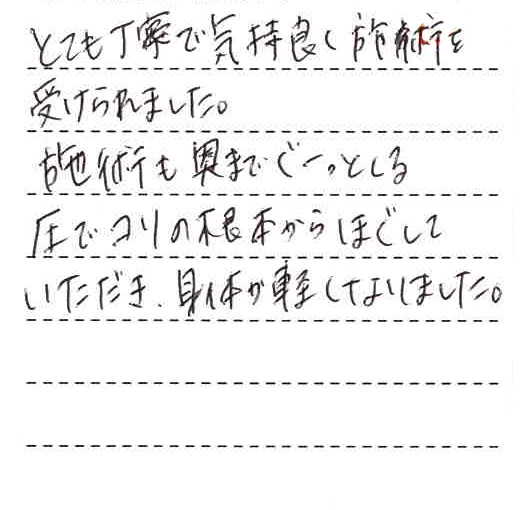 とても丁寧で気持良く施術を
受けられました。
施術も奥までぐーっとくる
圧でコリの根本からほぐして
いただき、身体が軽くなりました。